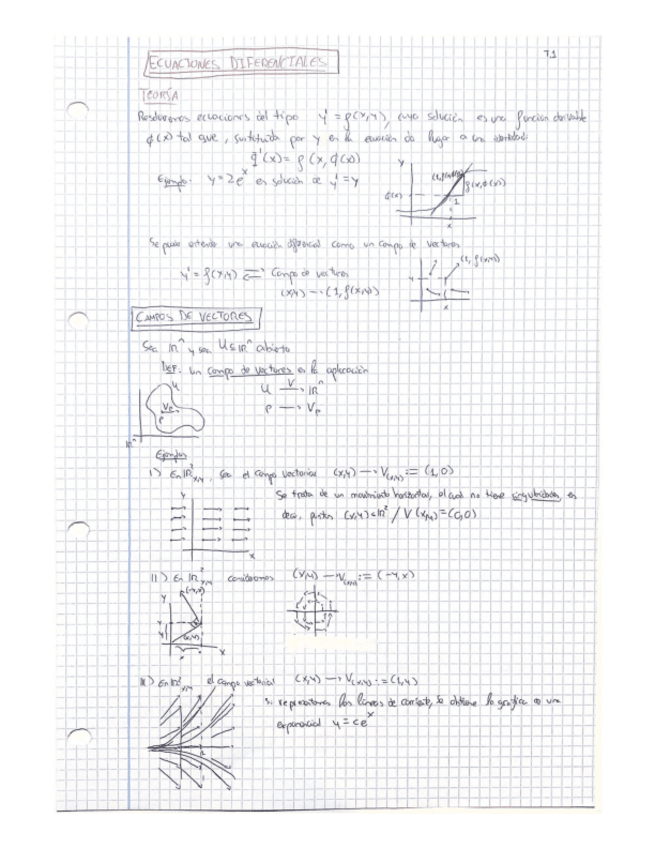 T1
ECUACIONES DIFERENCIALES
TEORÍA
Resolveremos ecuaciones del tipo y' = f(x,y), cuya solución es una función derivable
ϕ(x) tal que, sustituida por y en la ecuación da lugar a una identidad:
ϕ'(x) = f(x, ϕ(x))
Ejemplo: y = 2eˣ es solución de y' = y
y
ϕ(x)
f(x,ϕ(x))
1
x
Se puede entender una ecuación diferencial como un campo de vectores
y' = f(x,y) ⇌ Campo de vectores
(x,y) → (1, f(x,y))
(1, f(x,y))
y
x
CAMPOS DE VECTORES
Sea ℝⁿ y sea U ⊆ ℝⁿ abierto
DEF: Un campo de vectores es la aplicación
U —V→ ℝⁿ
p → Vp
U
Vp
p
ℝⁿ
Ejemplos
I) En ℝ²x,y, sea el campo vectorial (x,y) → V(x,y) := (1,0)
Se trata de un movimiento horizontal, el cual no tiene singularidades, es
decir, puntos (x,y) ∈ ℝ² / V(x,y) = (0,0)
y
x
II) En ℝ²x,y consideramos (x,y) → V(x,y) := (-y,x)
(-y,x)
y
y
(x,y)
x
x
III) En ℝ²x,y el campo vectorial (x,y) → V(x,y) := (1,y)
Si representamos las líneas de corriente, se obtiene la gráfica de una
exponencial y = ceˣ